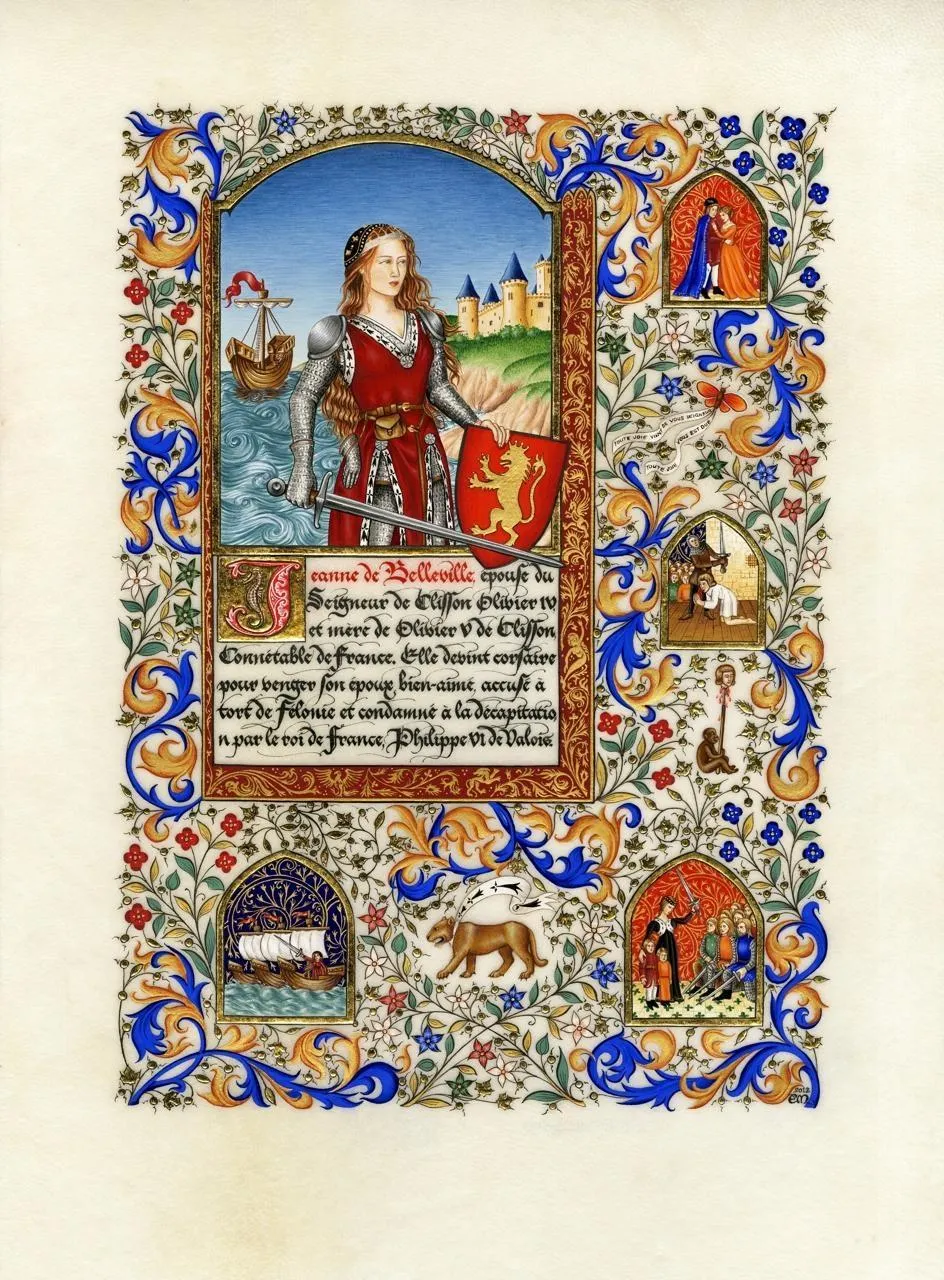 Jeanne de Belleville, épouse du
Seigneur de Clisson Olivier IV
et mère de Olivier V de Clisson
Connétable de France. Elle devint corsaire
pour venger son époux bien-aimé, accusé à
tort de Félonie et condamné à la décapitatio
n par le roi de France, Philippe VI de Valois.
TOUTE JOIE VIENT DE VOUS SEIGNEUR
TOUTE JOIE VOUS EST DUE
2012
EM